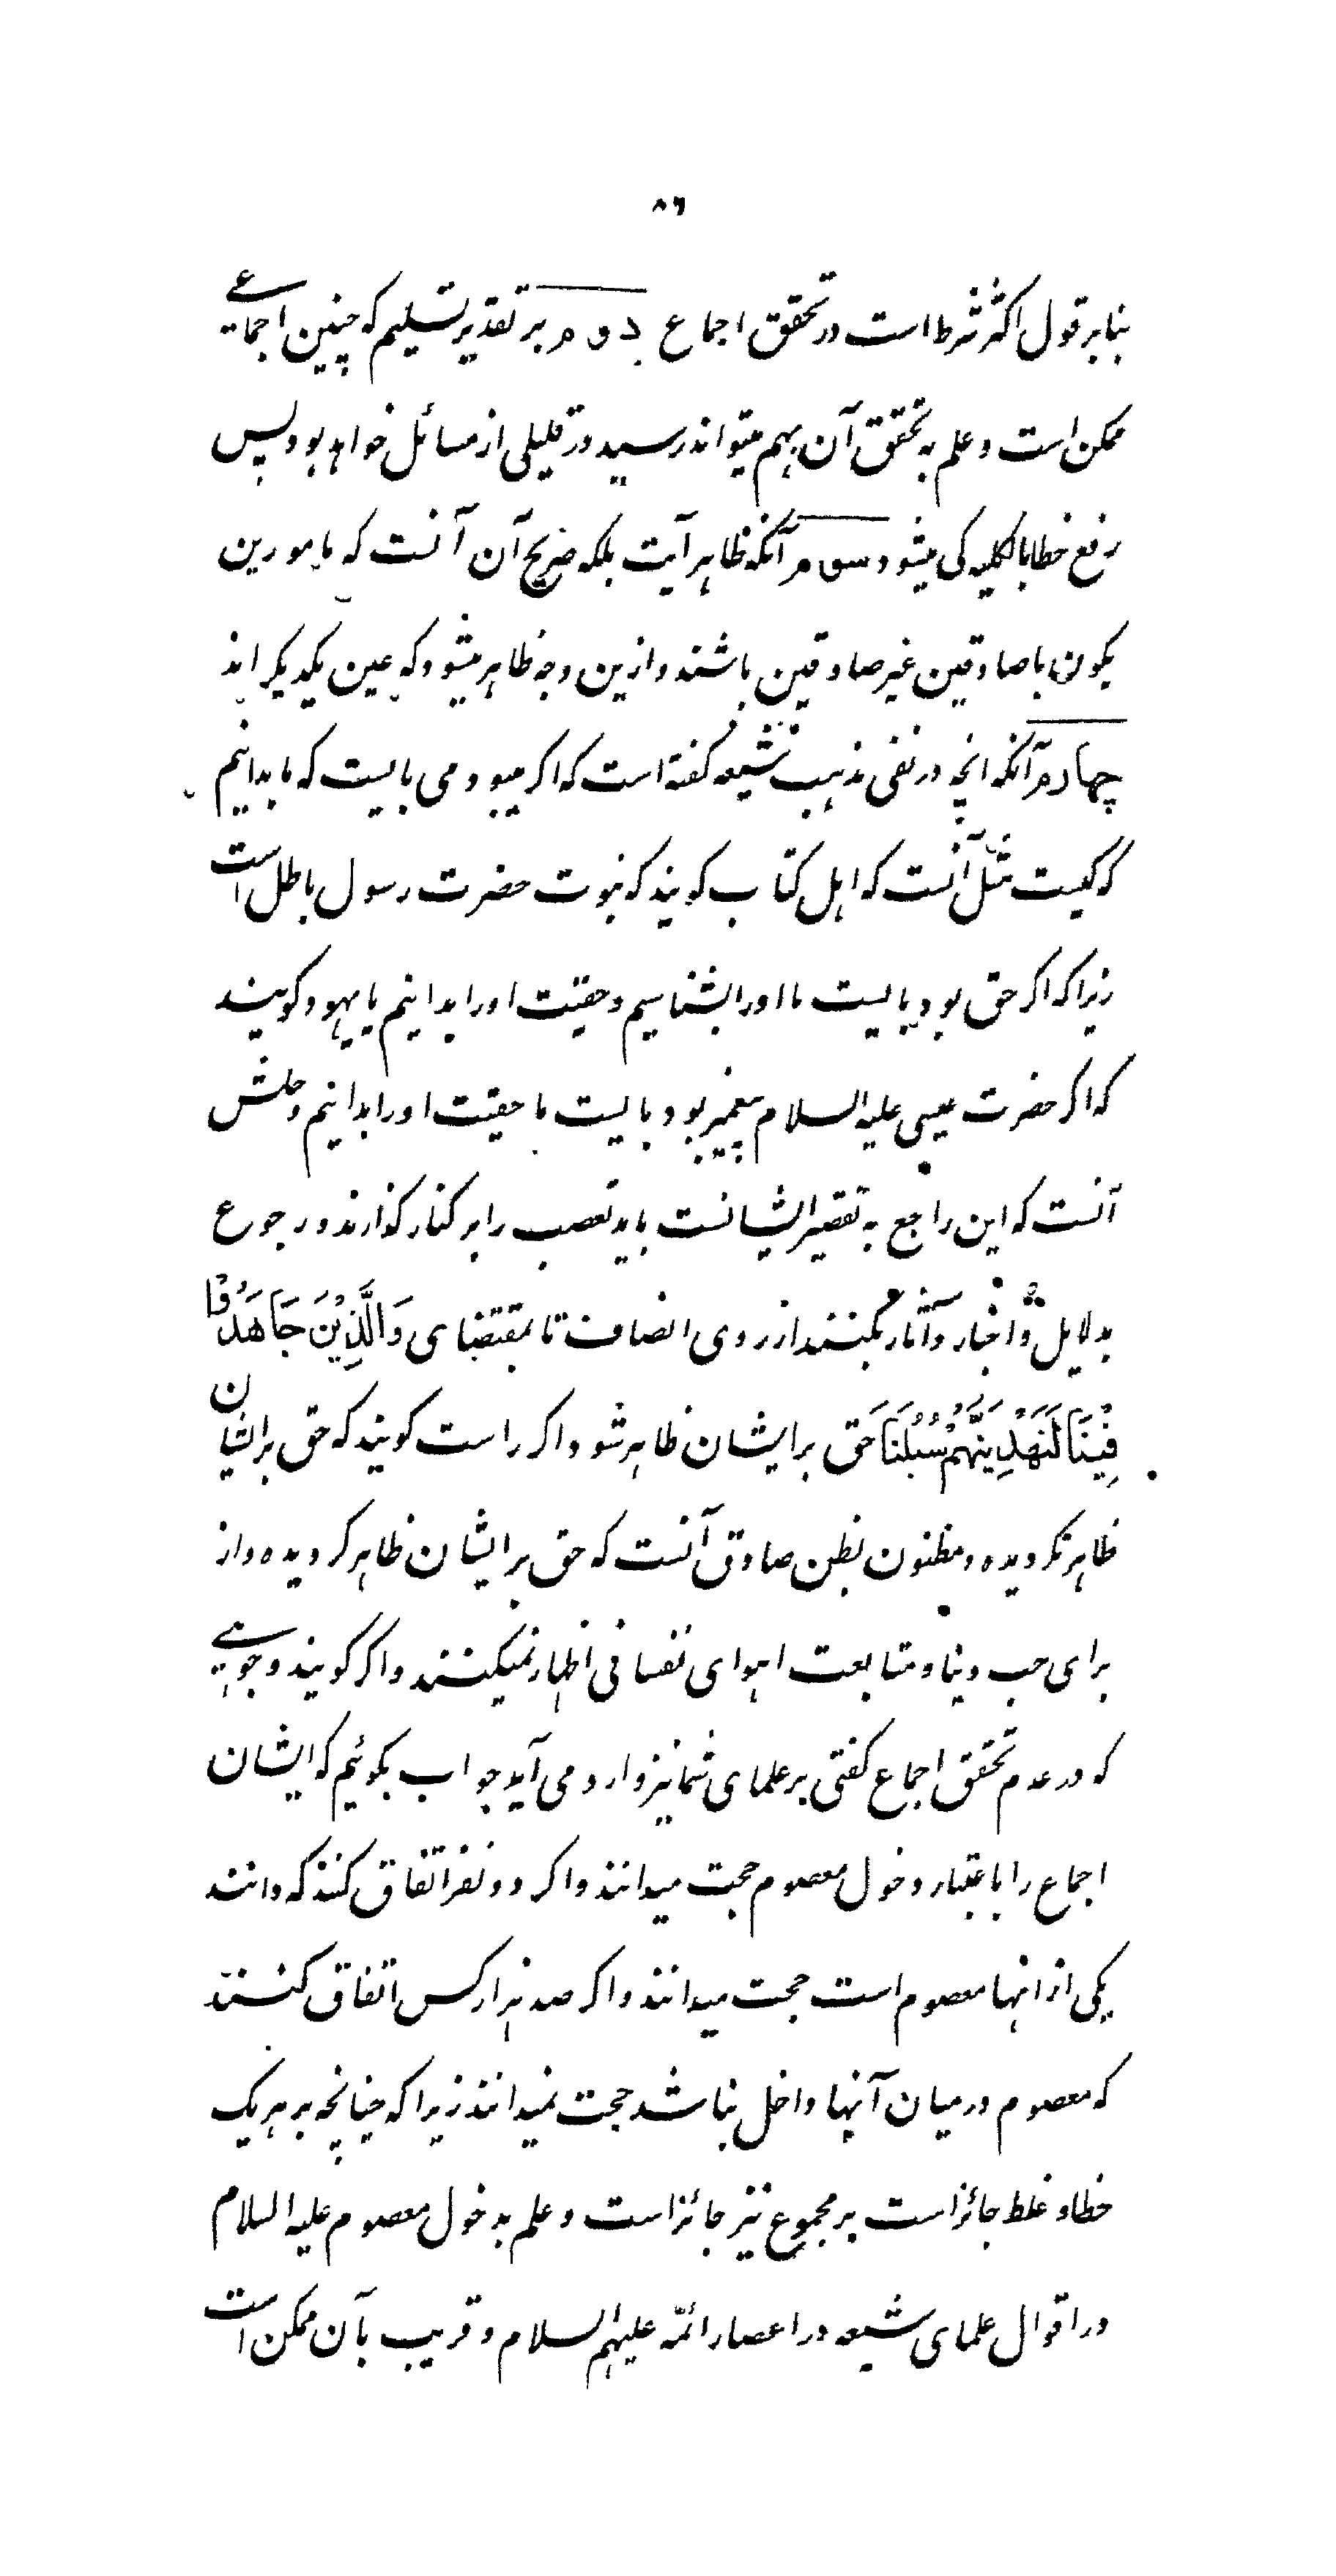 ۸۶
بنابر قول اکثر شرط است در تحقق اجماع دوم بر تقدیر تسلیم که چنین اجماعی
ممکن است و علم به تحقق آن بهم میتواند رسید در قلیلی از مسائل خواهد بود پس
رفع خطا بالکلیه کی میشود سوم آنکه ظاهر آیت بلکه صریح آن آنست که مامورین
بکون با صادقین غیر صادقین باشند و ازین وجه ظاهر میشود که عین یکدیکر اند
چهارم آنکه انچه در نفی مذهب شیعه کفته است که اکر میبود می بایست که ما بدانیم
که کیست مثل آنست که اهل کتاب کویند که نبوت حضرت رسول باطل است
زیرا که اکر حق بود بایست ما او را بشناسیم و حقیت او را بدانیم یا یهود کویند
که اکر حضرت عیسی علیه السلام پیغمبر بود بایست ما حقیت او را بدانیم و حلش
آنست که این راجع به تقصیر ایشانست باید تعصب را بر کنار کذارند و رجوع
بدلایل و اخبار و آثار بکنند از روی انصاف تا بمقتضای وَالَّذِیْنَ جَاهَدُوْا
فِیْنَا لَنَهْدِیَنَّهُمْ سُبُلَنَا حق بر ایشان ظاهر شود و اکر راست کویند که حق بر ایشان
ظاهر نکردیده و مظنون بظن صادق آنست که حق بر ایشان ظاهر کردیده و از
برای حب دنیا و متابعت اهوای نفسانی اظهار نمیکنند و اکر کویند وجوهی
که در عدم تحقق اجماع کفتی بر علمای شما نیز وارد می آید جواب بکوئیم که ایشان
اجماع را باعتبار دخول معصوم حجت میدانند و اکر دو نفر اتفاق کنند که دانند
یکی از انها معصوم است حجت میدانند و اکر صد هزار کس اتفاق کنند
که معصوم در میان آنها داخل نباشد حجت نمیدانند زیرا که چنانچه بر هر یک
خطا و غلط جائز است بر مجموع نیز جائز است و علم بدخول معصوم علیه السلام
در اقوال علمای شیعه در اعصار ائمّه علیهم السلام و قریب بآن ممکن است